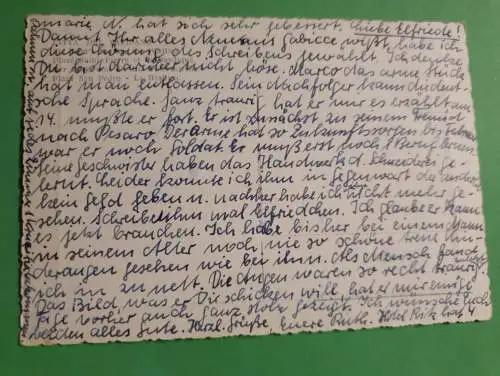 emarie N. hat sich sehr gebessert. Liebe Elfriede!
Damit Ihr alles Neue aus Gabicce wißt, habe ich
diese Lösung des Schreibens gewählt. Ich denke
Du bist darüber nicht böse. Marco das arme Stück
hat man entlassen. Sein Nachfolger kann die deut-
sche Sprache. Ganz traurig hat er mir es erzählt am
14. mußte er fort. Er ist zunächst zu seinem Freund
nach Pesaro. Der arme hat so Zukunftssorgen bis jetzt
war er noch Soldat. Er muß erst noch 1 Beruf lernen.
Seine Geschwister haben das Handwerk d. Schneiders ge-
lernt. Leider konnte ich ihm in Gegenwart
kein Geld geben u. nachher habe ich ihn nicht mehr ge-
sehen. Schreibe ihm mal Elfriedchen. Ich glaube er kann
es jetzt brauchen. Ich habe bisher bei einem Mann
in seinem Alter noch nie so schöne treue
deraugen gesehen wie bei ihm. Als Mensch fand
ich ihn zu nett. Die Augen waren so recht traurig.
Das Bild, was er Dir schicken will hat er mir einige
Tage vorher auch ganz stolz gezeigt. Ich wünsche Euch
beiden alles Gute. Herzl. Grüße Euere Ruth. Hotel Ritz hat 4